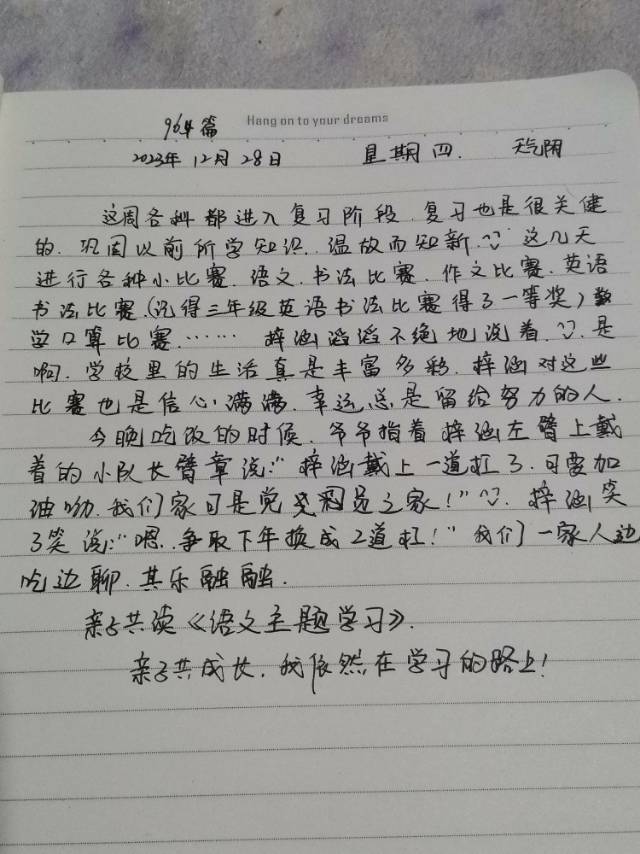 Hang on to your dreams
964篇
2023年12月28日 星期四. 天气阴
这周各科都进入复习阶段.复习也是很关健
的.巩固以前所学知识.温故而知新.这几天
进行各种小比赛.语文.书法比赛.作文比赛.英语
书法比赛.(记得三年级英语书法比赛得了一等奖)数
学口算比赛……梓涵滔滔不绝地说着.是
啊.学校里的生活真是丰富多彩.梓涵对这些
比赛也是信心满满.幸运总是留给努力的人.
今晚吃饭的时候.爷爷指着梓涵左臂上戴
着的小队长臂章说:"梓涵戴上一道杠了.可要加
油呦.我们家可是党员之家!".梓涵笑
了笑说:"嗯.争取下年换成2道杠!"我们一家人边
吃边聊.其乐融融.
亲子共读《语文主题学习》.
亲子共成长.我依然在学习的路上!